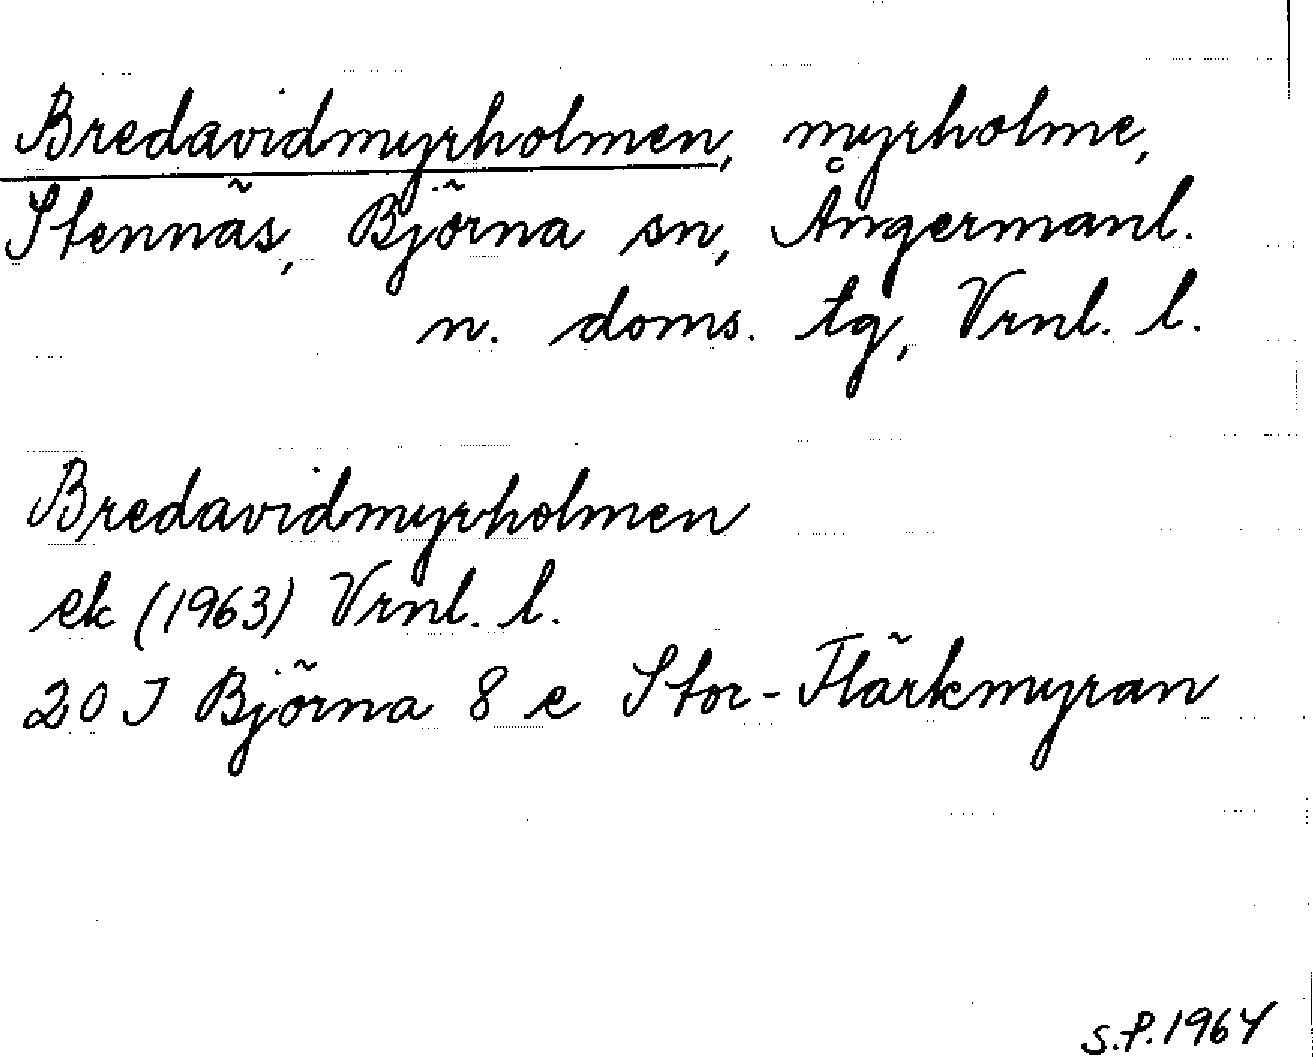 Bredavidmyrholmen, myrholme,
Stennäs, Björna sn, Ångermanl.
n. doms. tg, Vrnl. l.
Bredavidmyrholmen
ek (1963) Vrnl. l.
20 J Björna 8 e Stor-Flärkmyran
S.P. 1964